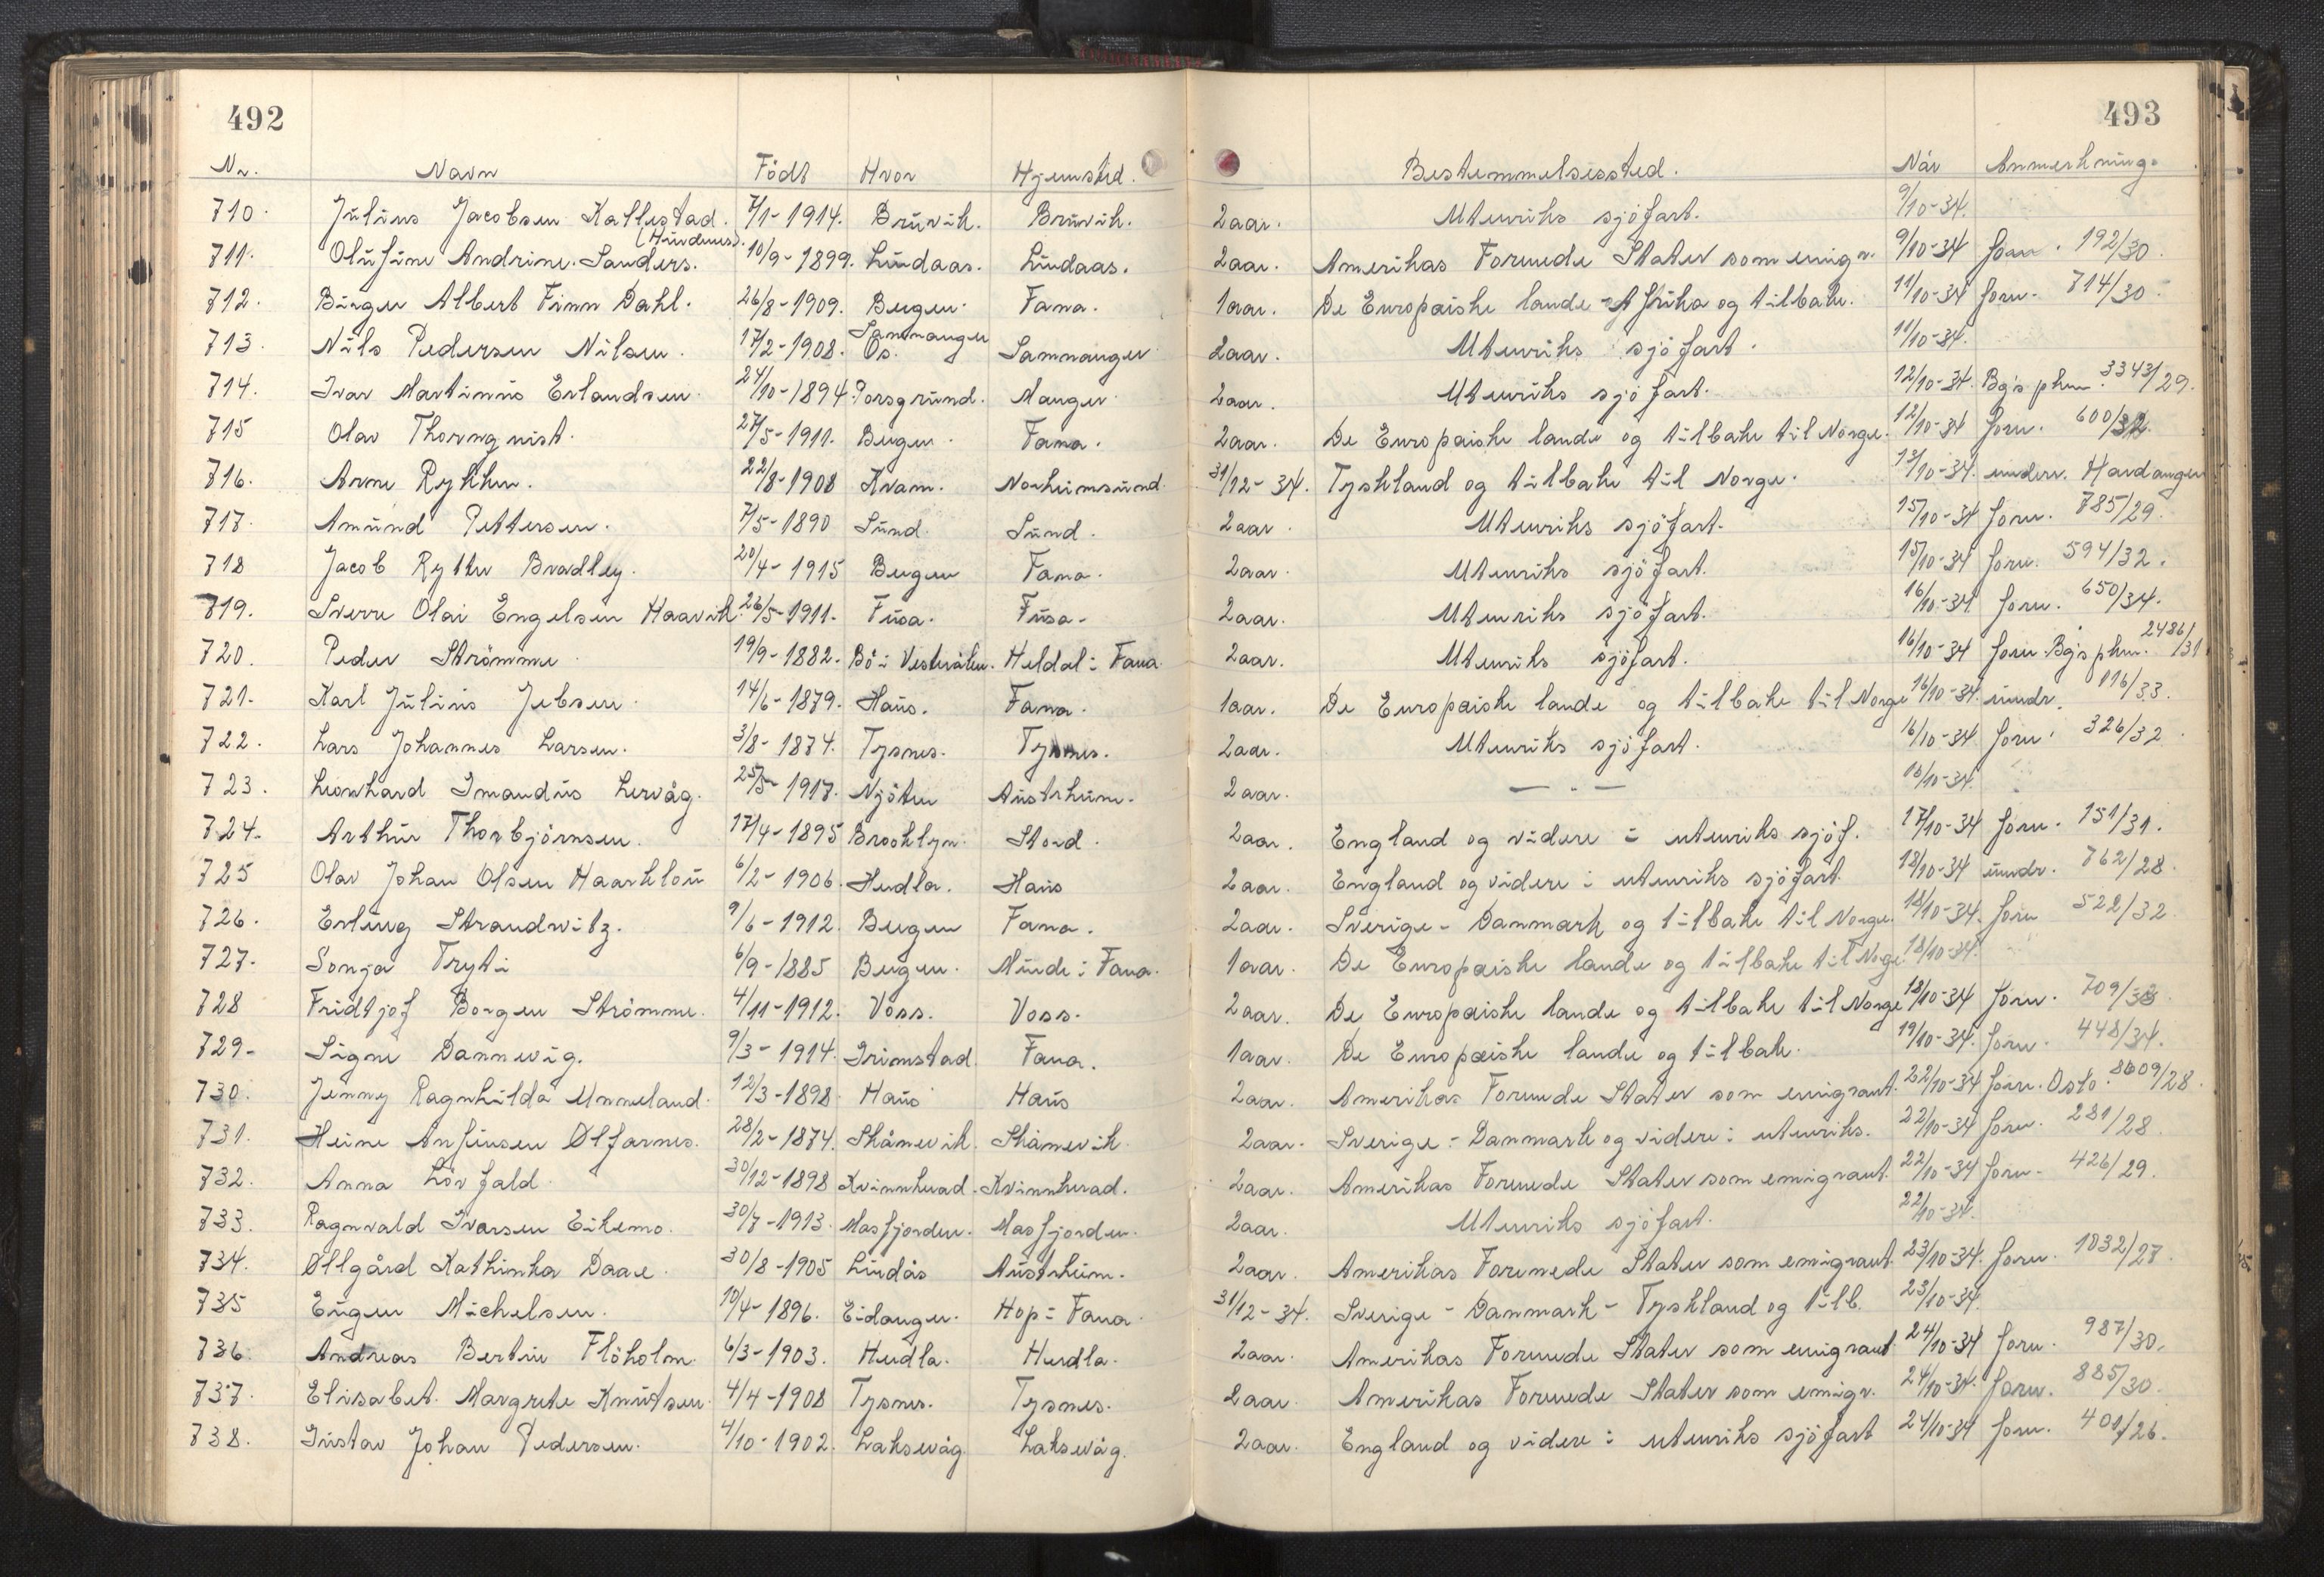 492
493
Nr. Navn Födt Hvor Hjemsted. Bestemmelsessted. Når Anmerkning.
710. Julius Jacobsen Kallestad. 7/1-1914. Bruvik. Bruvik. 2 aar. Utenriks sjöfart. 9/10-34.
711. Olufine Andrine Sanders. 10/9-1899. Lindaas. Lindaas. 2 aar. Amerikas Forenede Stater som emigr. 9/10-34 forn. 192/30.
712. Birger Albert Finn Dahl. 26/8-1909. Bergen. Fana. 1 aar. De Europæiske lande - Afrika og tilbake. 11/10-34 forn. 714/30.
713. Nils Pedersen Nilsen. 17/2-1908. Samnanger Os. Samnanger 2 aar. Utenriks sjöfart. 11/10-34.
714. Ivar Martinius Erlandsen 24/10-1894 Porsgrund. Manger 2 aar. Utenriks sjöfart. 12/10-34. Bg's pkm. 3343/29.
715 Olav Thornqvist. 27/5-1911. Bergen. Fana. 2 aar. De Europæiske lande og tilbake til Norge. 12/10-34 forn. 600/32.
716. Arne Rykken. 22/8-1908 Kvam. Norheimsund. 31/12-34. Tyskland og tilbake til Norge. 13/10-34. underv. Hardanger
717. Amund Pettersen. 7/5-1890 Sund. Sund. 2 aar. Utenriks sjöfart. 15/10-34 forn. 785/29.
718 Jacob Rytter Bradley. 20/4-1915 Bergen Fana. 2 aar. Utenriks sjöfart. 15/10-34 forn. 594/32.
719. Sverre Olai Engelsen Haavik. 26/5-1911. Fusa. Fusa. 2 aar. Utenriks sjöfart. 16/10-34 forn. 650/34.
720. Peder Strömme 19/9-1882. Bö i Vesterålen. Heldal i Fana. 2 aar. Utenriks sjöfart. 16/10-34 forn. Bg's pkm. 2486/31
721. Karl Julius Jebsen. 14/6-1879. Haus. Fana. 1 aar. De Europæiske lande og tilbake til Norge 16/10-34. undr. 816/33.
722. Lars Johannes Larsen. 3/8-1874. Tysnes. Tysnes. 2 aar. Utenriks sjöfart. 16/10-34. forn. 326/32
723. Leonhard Imandus Lervåg. 25/5-1917. Njöten Austrheim. 2 aar. — " — 16/10-34.
724. Arthur Thorbjörnsen. 17/4-1895 Brooklyn. Stord. 2 aar. England og videre i utenriks sjöf. 17/10-34 forn. 151/31.
725 Olav Johan Olsen Haarklou 6/2-1906. Herdla. Haus 2 aar. England og videre i utenriks sjöfart. 18/10-34 undr. 762/28.
726. Erling Strandwitz. 9/6-1912. Bergen Fana. 2 aar. Sverige - Danmark og tilbake til Norge. 18/10-34. forn 522/32
727. Sonja Tryti 6/9-1885 Bergen. Minde i Fana. 1 aar. De Europæiske lande og tilbake til Norge. 18/10-34.
728 Fridtjof Borgen Strömme. 4/11-1912. Voss. Voss. 2 aar. De Europæiske lande og tilbake til Norge 18/10-34 forn. 709/33
729. Signe Dannevig. 9/3-1914. Grimstad. Fana. 1 aar. De Europæiske lande og tilbake. 19/10-34. forn. 448/34.
730. Jenny Ragnhilda Unneland. 12/3-1898 Haus Haus 2 aar. Amerikas Forenede Stater som emigrant. 22/10-34 forn. Oslo. 8609/28.
731. Heine Anfinsen Ølfarnes. 28/2-1874. Skånevik. Skånevik. 2 aar. Sverige - Danmark og videre i utenriks. 22/10-34 forn. 281/28.
732. Anna Lövfald. 30/12-1898 Kvinnherad. Kvinnherad. 2 aar. Amerikas Forenede Stater som emigrant. 22/10-34 forn. 426/29.
733. Ragnvald Ivarsen Eikemo. 30/7-1913. Masfjorden. Masfjorden. 2 aar. Utenriks sjöfart. 22/10-34.
734. Øllgård Kathinka Daae. 30/8-1905 Lindås Austrheim. 2 aar. Amerikas Forenede Stater som emigrant. 23/10-34. forn. 1032/27.
735 Eugen Michelsen. 10/4-1896. Eidanger. Hop i Fana. 31/12-34. Sverige - Danmark - Tyskland og tilb. 23/10-34.
736. Andreas Bertin Flöholm. 6/3-1903. Herdla. Herdla. 2 aar. Amerikas Forenede Stater som emigrant 24/10-34 forn. 987/30.
737. Elisabet Margrete Knutsen. 4/4-1908 Tysnes. Tysnes. 2 aar. Amerikas Forenede Stater som emigr. 24/10-34. forn. 885/30.
738. Gustav Johan Pedersen. 4/10-1902. Laksevåg. Laksevåg. 2 aar. England og videre i utenriks sjöfart 24/10-34 forn. 401/26.